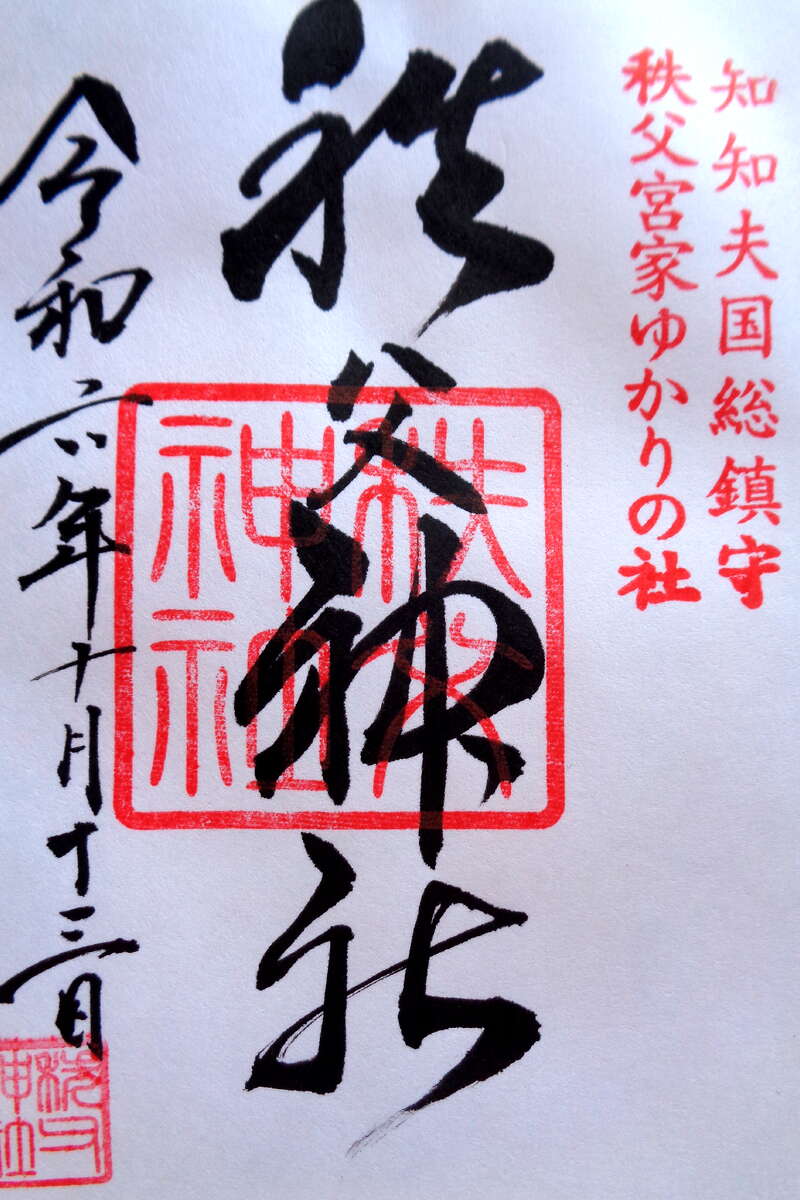 知知夫国総鎮守
秩父宮家ゆかりの社
秩父神社
秩父神社
令和六年十月十三日
秩父神社